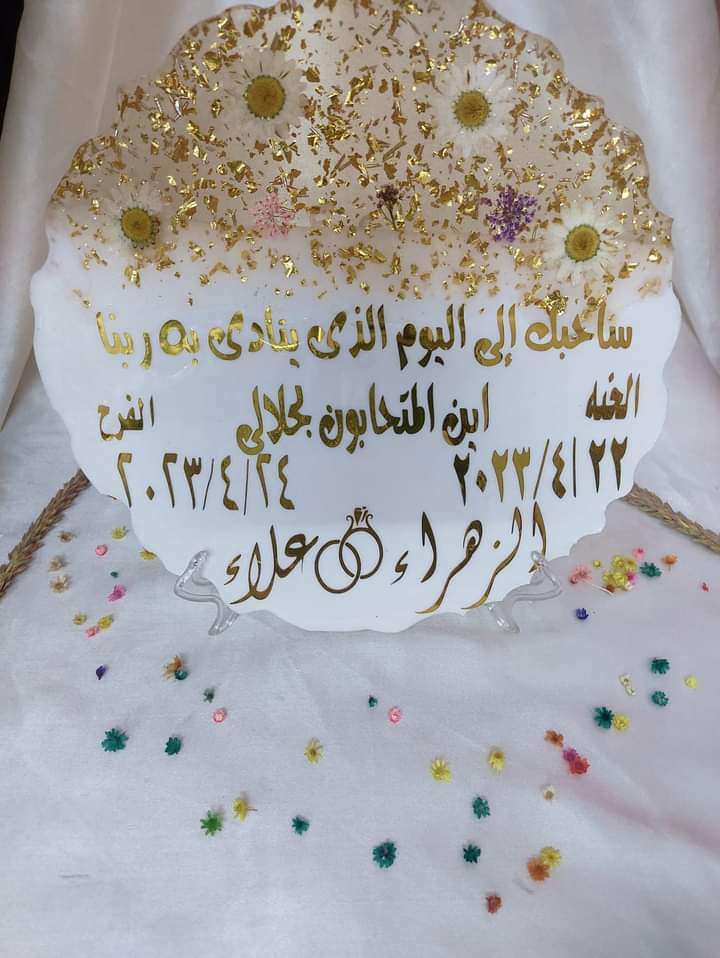 سأحبك إلى اليوم الذى ينادى به ربنا
الحنه اين المتحابون بجلالى الفرح
٢٠٢٣/٤/٢٢ ٢٠٢٣/٤/٢٤
الزهراء علاء